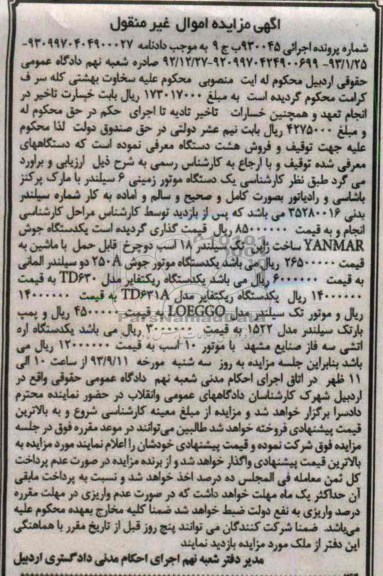 آگهی مزایده اموال غیر منقول
شماره پرونده اجرائی ۹۳۰۰۴۵ب ج ۹ به موجب دادنامه ۹۳۰۹۹۷۰۴۰۴۹۰۰۰۲۷-
۹۳/۱/۲۵- ۹۲۰۹۹۷۰۴۲۴۹۰۰۶۹۹-۹۲/۱۲/۲۷ صادره شعبه نهم دادگاه عمومی
حقوقی اردبیل محکوم له ایت منصوبی محکوم علیه سخاوت بهشتی کله سر ف
کرامت محکوم گردیده است به مبلغ ۱۷۳۰۱۷۰۰۰ ریال بابت خسارت تاخیر در
انجام تعهد و همچنین خسارات تاخیر تادیه تا اجرای حکم در حق محکوم له
و مبلغ ۴۲۷۵۰۰۰ ریال بابت نیم عشر دولتی در حق صندوق دولت لذا محکوم
علیه جهت توقیف و فروش هشت دستگاه معرفی نموده است که دستگاههای
معرفی شده توقیف و با ارجاع به کارشناس رسمی به شرح ذیل ارزیابی و براورد
می گرد طبق نظر کارشناسی یک دستگاه موتور زمینی ۶ سیلندر با مارک پرکنز
باشاسی و رادیاتور بصورت کامل و صحیح و سالم و اماده به کار شماره سیلندر
بدنی ۳۵۲۸۰۰۱۶ می باشد که پس از بازدید توسط کارشناس مراحل کارشناسی
انجام و به قیمت ۸۵۰۰۰۰۰۰ ریال قیمت گذاری گردیده است یکدستگاه جوش
YANMAR ساخت ژاپن تک سیلندر ۱۸ اسب دوچرخ قابل حمل با ماشین به
قیمت ۲۶۵۰۰۰۰۰ ریال می باشد یکدستگاه موتور جوش ۲۵۰A دو سیلندر المانی
به قیمت ۶۰۰۰۰۰۰ ریال می باشد یکدستگاه ریکتفایر مدل TD۶۳۰ به قیمت
۱۴۰۰۰۰۰۰ ریال یکدستگاه ریکتفایر مدل TD۶۳۱A به قیمت ۱۴۰۰۰۰۰۰
ریال و موتور تک سیلندر مدل LOEGGO به قیمت ۴۵۰۰۰۰۰ ریال و پمپ
بارتک سیلندر مدل ۱۵۲۲ به قیمت ۳۰۰۰۰۰۰ ریال می باشد یکدستگاه اره
اتشی سه فاز صنایع مشهد با موتور ۱۰ اسب به قیمت ۱۲۰۰۰۰۰۰ ریال می
باشد بنابراین جلسه مزایده به روز سه شنبه مورخه ۹۳/۹/۱۱ از ساعت ۱۰ الی
۱۱ ظهر در اتاق اجرای احکام مدنی شعبه نهم دادگاه عمومی حقوقی واقع در
اردبیل شهرک کارشناسان دادگاههای عمومی وانقلاب در حضور نماینده محترم
دادسرا برگزار خواهد شد و مزایده از مبلغ معینه کارشناسی شروع و به بالاترین
قیمت پیشنهادی فروخته خواهد شد طالبین می‌توانند در موعد مقرره فوق در جلسه
مزایده فوق شرکت نموده و قیمت پیشنهادی خودشان را اعلام نمایند مورد مزایده به
بالاترین قیمت پیشنهادی واگذار خواهد شد و از برنده مزایده در صورت عدم پرداخت
کل ثمن معامله فی المجلس ده درصد اخذ خواهد شد و نسبت به پرداخت مابقی
آن حداکثر یک ماه مهلت خواهد داشت که در صورت عدم واریزی در مهلت مقرره
درصد واریزی به نفع دولت ضبط خواهد شد ضمنا کلیه مخارج بعهده محکوم علیه
می‌باشد. ضمنا شرکت کنندگان می توانند پنج روز قبل از تاریخ مقرر با هماهنگی
این دفتر از ملک مورد مزایده بازدید نمایند
مدیر دفتر شعبه نهم اجرای احکام مدنی دادگستری اردبیل